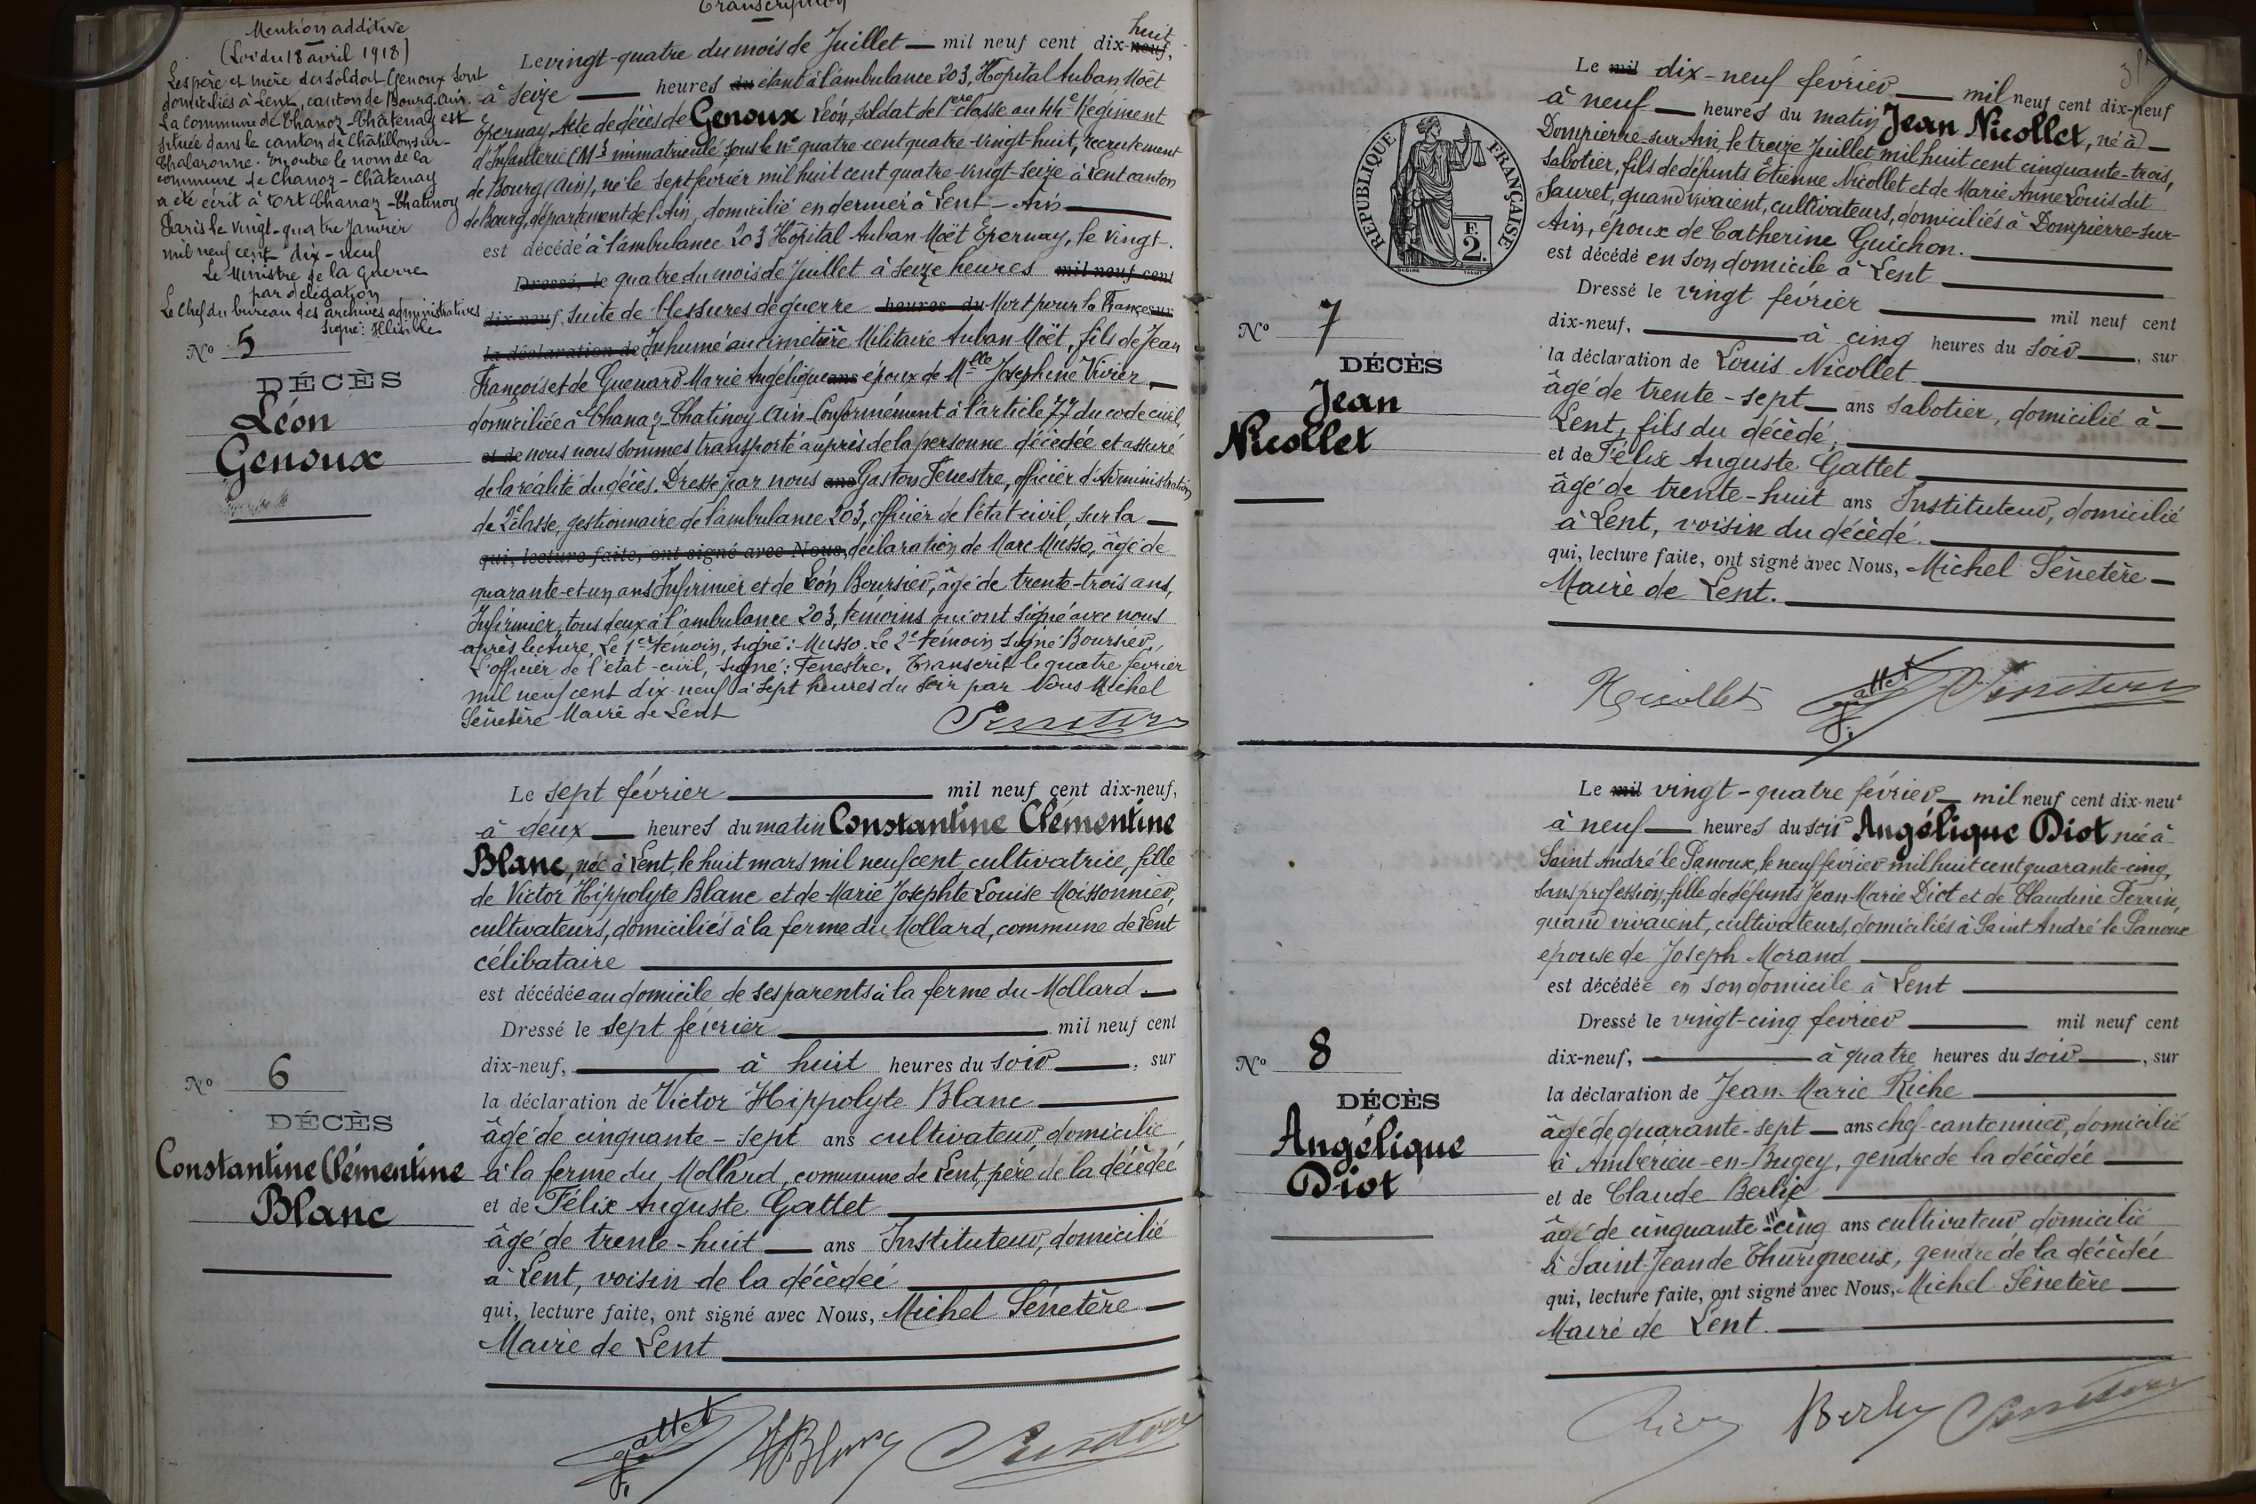 Transcription
Mention additive
(Loi du 18 avril 1918)
Les père et mère du soldat Genoux sont
domiciliés à Lent, canton de Bourg. Ain.
La commune de Chanoz-Châtenay est
située dans le canton de Châtillon-sur-
Chalaronne. En outre le nom de la
commune de Chanoz-Châtenay
a été écrit à tort Chanaz-Chatinoy
Paris le vingt-quatre Janvier
mil neuf cent dix-neuf
Le Ministre de la guerre
par délégation
Le Chef du bureau des archives administratives
signé:
No 5
DÉCÈS
Léon
Genoux
Le vingt-quatre du mois de Juillet — mil neuf cent dix-neuf, huit
à seize — heures du étant à l'ambulance 203, Hopital Auban Moët
Epernay, Acte de décès de Genoux Léon, soldat de 1ere classe au 44e Régiment
d'Infanterie (Mle immatriculé sous le no quatre-cent quatre-vingt-huit, recrutement
de Bourg (Ain), né le sept février mil huit cent quatre-vingt-seize à Lent canton
de Bourg, département de l'Ain, domicilié en dernier à Lent - Ain
est décédé à l'ambulance 203 Hôpital Auban Moët Epernay, le vingt-
Dressé, le quatre du mois de Juillet à seize heures mil neuf cent
dix-neuf, suite de blessures de guerre heures du Mort pour la France sur
la déclaration de Inhumé au cimetière Militaire Auban Moët, fils de Jean
François et de Guenard Marie Angélique ans époux de Mlle Josephine Vivier
domiciliée à Chanaz-Chatinoy Ain-Conformément à l'article 77 du code civil,
et de nous nous sommes transporté auprès de la personne décédée et assuré
de la réalité du décès. Dressé par nous ans Gaston Fenestre, officier d'Administration
de 2e classe, gestionnaire de l'ambulance 203, officier de l'état-civil, sur la
qui, lecture faite, ont signé avec Nous, déclaration de Marc Musso, âgé de
quarante-et-un ans Infirmier et de Léon Boursier, âgé de trente-trois ans,
Infirmier, tous deux à l'ambulance 203, témoins qui ont signé avec nous
après lecture, Le 1er témoin, signé: Musso. Le 2e témoin signé Boursier,
L'officier de l'état-civil, signé: Fenestre. Transcrit le quatre février
mil neuf cent dix-neuf à sept heures du soir par Nous Michel
Sénetère Maire de Lent
No 6
DÉCÈS
Constantine Clémentine
Blanc
Le sept février — mil neuf cent dix-neuf,
à deux — heures du matin Constantine Clémentine
Blanc, née à Lent, le huit mars mil neuf cent, cultivatrice, fille
de Victor Hippolyte Blanc et de Marie Josephte Louise Moissonnier,
cultivateurs, domiciliés à la ferme du Mollard, commune de Lent
célibataire
est décédée au domicile de ses parents à la ferme du Mollard
Dressé le sept février — mil neuf cent
dix-neuf, — à huit heures du soir —, sur
la déclaration de Victor Hippolyte Blanc
âgé de cinquante-sept ans cultivateur domicilié
à la ferme du Mollard, commune de Lent, père de la décédée
et de Félix Auguste Gattet
âgé de trente-huit — ans Instituteur, domicilié
à Lent, voisin de la décédée
qui, lecture faite, ont signé avec Nous, Michel Sénetère
Maire de Lent
F. Gattet
Blanc
RÉPUBLIQUE FRANÇAISE
F.
2.
No 7
DÉCÈS
Jean
Nicollet
Le mil dix-neuf février — mil neuf cent dix-neuf
à neuf — heures du matin Jean Nicollet, né à
Dompierre-sur-Ain, le treize Juillet mil huit cent cinquante-trois,
sabotier, fils de défunts Etienne Nicollet et de Marie Anne Louis dit
Sauret, quand vivaient, cultivateurs, domiciliés à Dompierre-sur-
Ain, époux de Catherine Guichon.
est décédé en son domicile à Lent
Dressé le vingt février — mil neuf cent
dix-neuf, — à cinq heures du soir —, sur
la déclaration de Louis Nicollet
âgé de trente-sept — ans sabotier, domicilié à
Lent, fils du décédé,
et de Félix Auguste Gattet
âgé de trente-huit ans Instituteur, domicilié
à Lent, voisin du décédé.
qui, lecture faite, ont signé avec Nous, Michel Sénetère
Maire de Lent.
Nicollet F. Gattet
No 8
DÉCÈS
Angélique
Diot
Le mil vingt-quatre février — mil neuf cent dix-neuf
à neuf — heures du soir Angélique Diot née à
Saint André le Panoux, le neuf février mil huit cent quarante-cinq,
sans profession, fille de défunts Jean-Marie Diot et de Claudine Perrin,
quand vivaient, cultivateurs, domiciliés à Saint André le Panoux
épouse de Joseph Morand
est décédée en son domicile à Lent
Dressé le vingt-cinq février — mil neuf cent
dix-neuf, — à quatre heures du soir —, sur
la déclaration de Jean-Marie Riche
âgé de quarante-sept — ans chef-cantonnier, domicilié
à Ambérieu-en-Bugey, gendre de la décédée
et de Claude Berlie
âgé de cinquante-cinq ans cultivateur domicilié
à Saint-Jean de Thurigneux, gendre de la décédée
qui, lecture faite, ont signé avec Nous, Michel Sénetère
Maire de Lent.